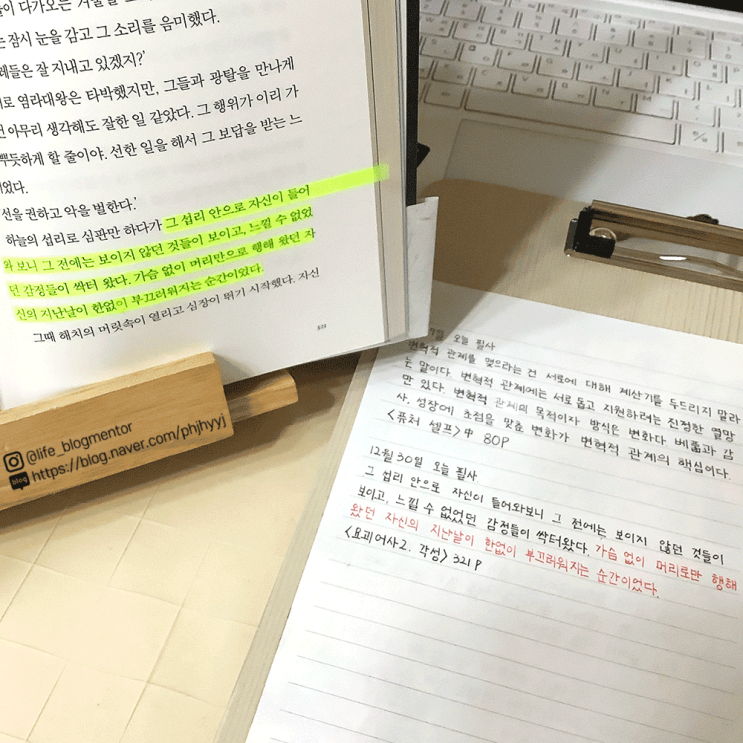 이 다가오는
잠시 눈을 감고 그 소리를 음미했다.
들은 잘 지내고 있겠지?'
로 염라대왕은 타박했지만, 그들과 광탈을 만나게
아무리 생각해도 잘한 일 같았다. 그 행위가 이리 가
뿌듯하게 할 줄이야. 선한 일을 해서 그 보답을 받는 느
었다.
선을 권하고 악을 벌한다.'
하늘의 섭리로 심판만 하다가 그 섭리 안으로 자신이 들어
와 보니 그 전에는 보이지 않던 것들이 보이고, 느낄 수 없었
던 감정들이 싹터 왔다. 가슴 없이 머리만으로 행해 왔던 자
신의 지난날이 한없이 부끄러워지는 순간이었다.
그때 해치의 머릿속이 열리고 심장이 뛰기 시작했다. 자신
@life_blogmentor
blog https://blog.naver.com/phjhyyj
일 오늘 필사
변혁적 관계를 맺으라는 건 서로에 대해 계산기를 두드리지 말라
는 말이다. 변혁적 관계에는 서로 돕고 지원하려는 진정한 열망
만 있다. 변혁적 관계의 목적이자 방식은 변화다. 베풂과 감
사, 성장에 초점을 맞춘 변화가 변혁적 관계의 핵심이다.
<퓨처 셀프> 中 80P
12월 30일 오늘 필사
그 섭리 안으로 자신이 들어와보니 그 전에는 보이지 않던 것들이
보이고, 느낄 수 없었던 감정들이 싹터왔다. 가슴 없이 머리로만 행해
왔던 자신의 지난날이 한없이 부끄러워지는 순간이었다.
<요괴어사2. 각성> 321P